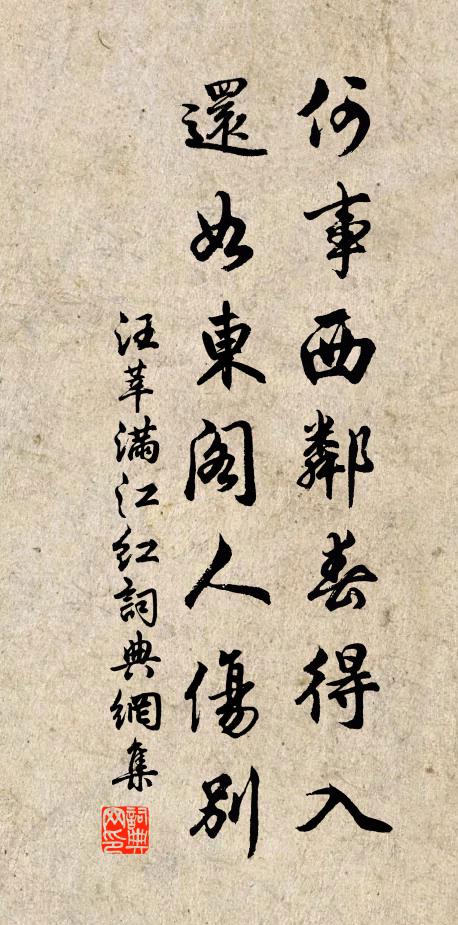 何事西鄰春得入
還如東閣人傷別
汪莘滿江紅詞典網集
詞典网印